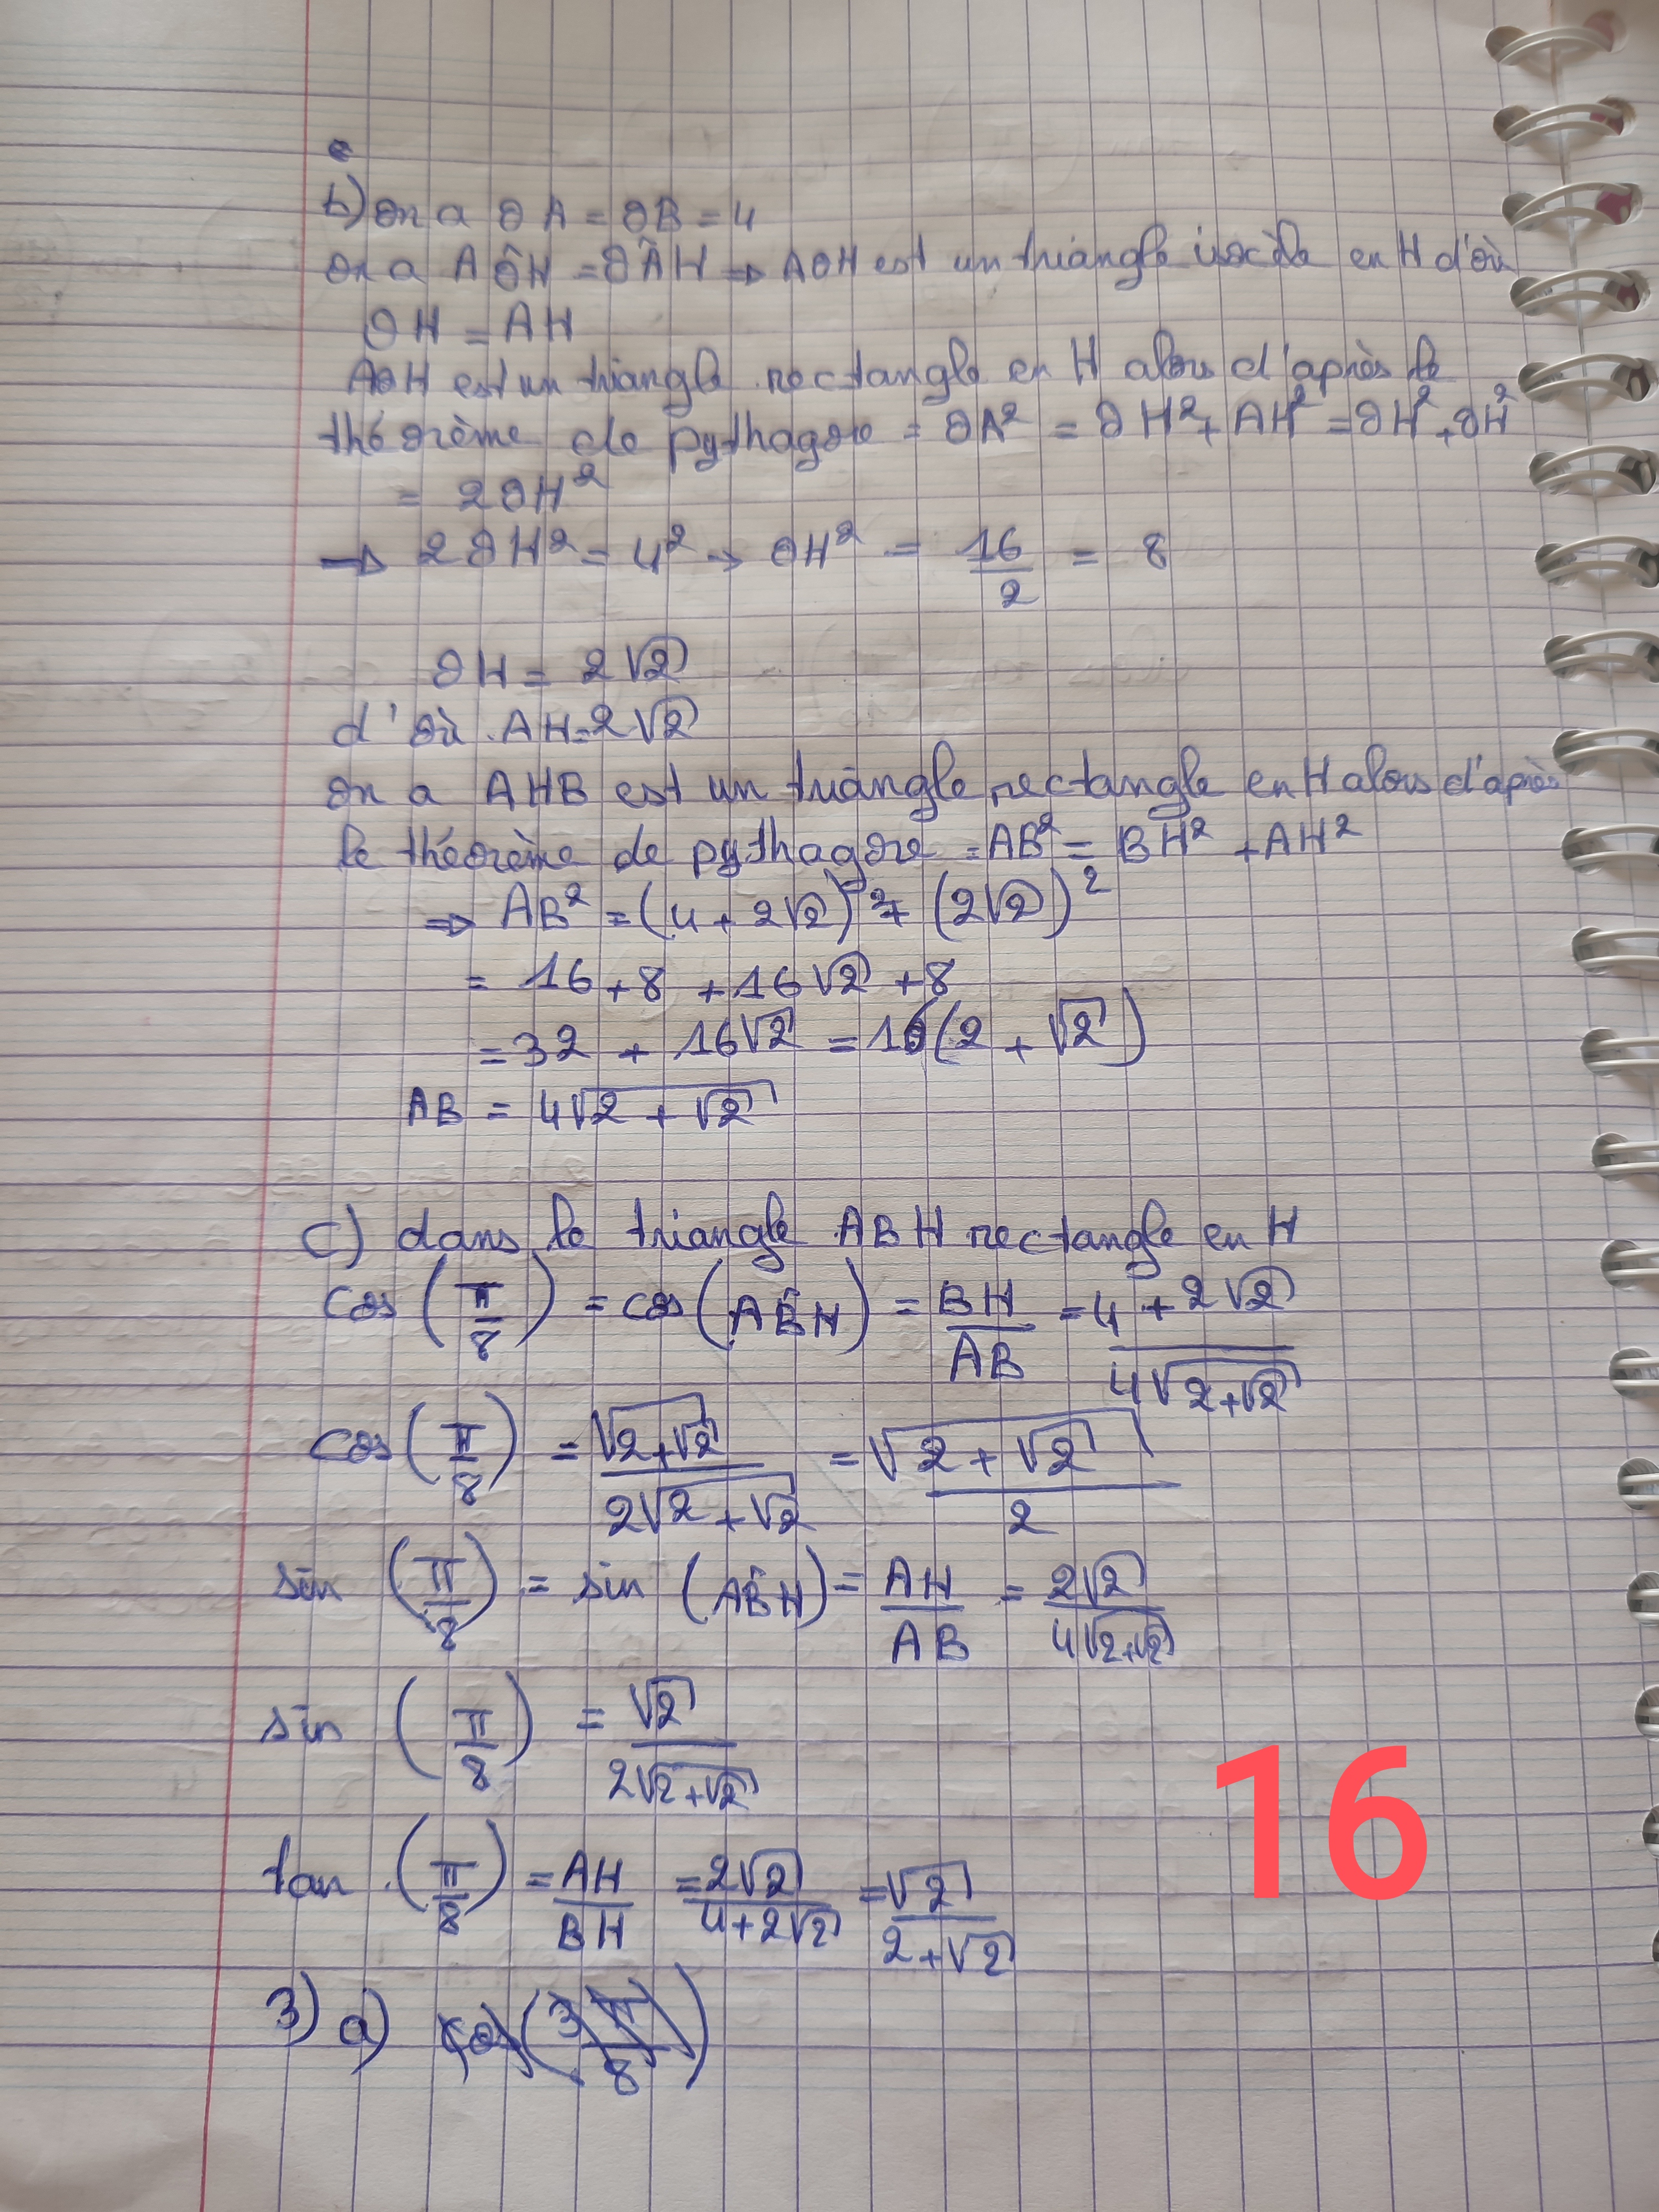 b) On a OA = OB = 4
On a AÔH = OÂH ⇒ AOH est un triangle isocèle en H d'où
OH = AH
AOH est un triangle rectangle en H alors d'après le
théorème de pythagore = OA² = OH² + AH² = OH² + OH²
= 2OH²
→ 2OH² = 4² → OH² = 16/2 = 8
OH = 2√2
d'où AH = 2√2
On a AHB est un triangle rectangle en H alors d'après
le théorème de pythagore = AB² = BH² + AH²
⇒ AB² = (4 + 2√2)² + (2√2)²
= 16 + 8 + 16√2 + 8
= 32 + 16√2 = 16(2 + √2)
AB = 4√(2 + √2)
c) dans le triangle ABH rectangle en H
cos(π/8) = cos(AB̂H) = BH/AB = (4 + 2√2)/(4√(2+√2))
cos(π/8) = √(2+√2)/(2√(2+√2)) = √(2 + √2)/2
sin(π/8) = sin(AB̂H) = AH/AB = 2√2/(4√(2+√2))
sin(π/8) = √2/(2√(2+√2))
tan(π/8) = AH/BH = 2√2/(4+2√2) = √2/(2+√2)
3) a) cos(3π/8)
16